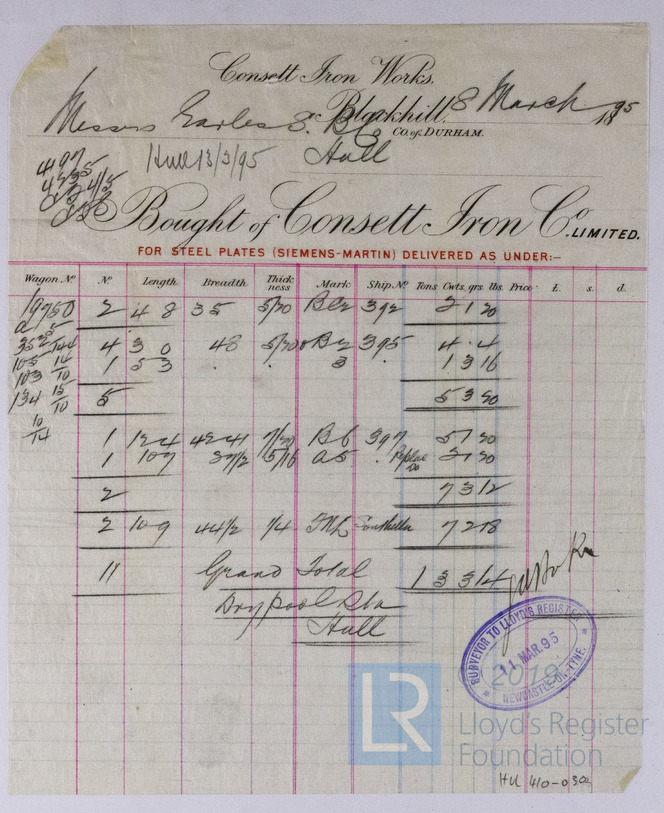 Consett Iron Works,
Blackhill, 8 March 1895
Messrs Earles S. B. Co
CO. of DURHAM.
Hull
Hull 13/3/95
497
Bought of Consett Iron Co. LIMITED.
FOR STEEL PLATES (SIEMENS-MARTIN) DELIVERED AS UNDER:—
Wagon No. No. Length Breadth Thickness Mark Ship No. Tons Cwts. qrs. lbs. Price £. s. d.
19750 2 4 8 35 5/20 392 2 1 20
4 3 0 48 5/20 395 4 . 4
1 5 3 . . 3 1 3 16
5 5 3 20
1 12 4 42 41 7/20 B6 397 5 1 20
1 10 7 37 1/2 5/16 A5 . 2 1 20
2 7 3 12
2 10 9 44 1/2 1/4 7 2 18
11 Grand Total 1 3 3 14
Drypool Stn
Hull
SURVEYOR TO LLOYD'S REGISTER
11 MAR. 95
NEWCASTLE-ON-TYNE.
2019
LR
Lloyd's Register
Foundation
HUL 410-0302